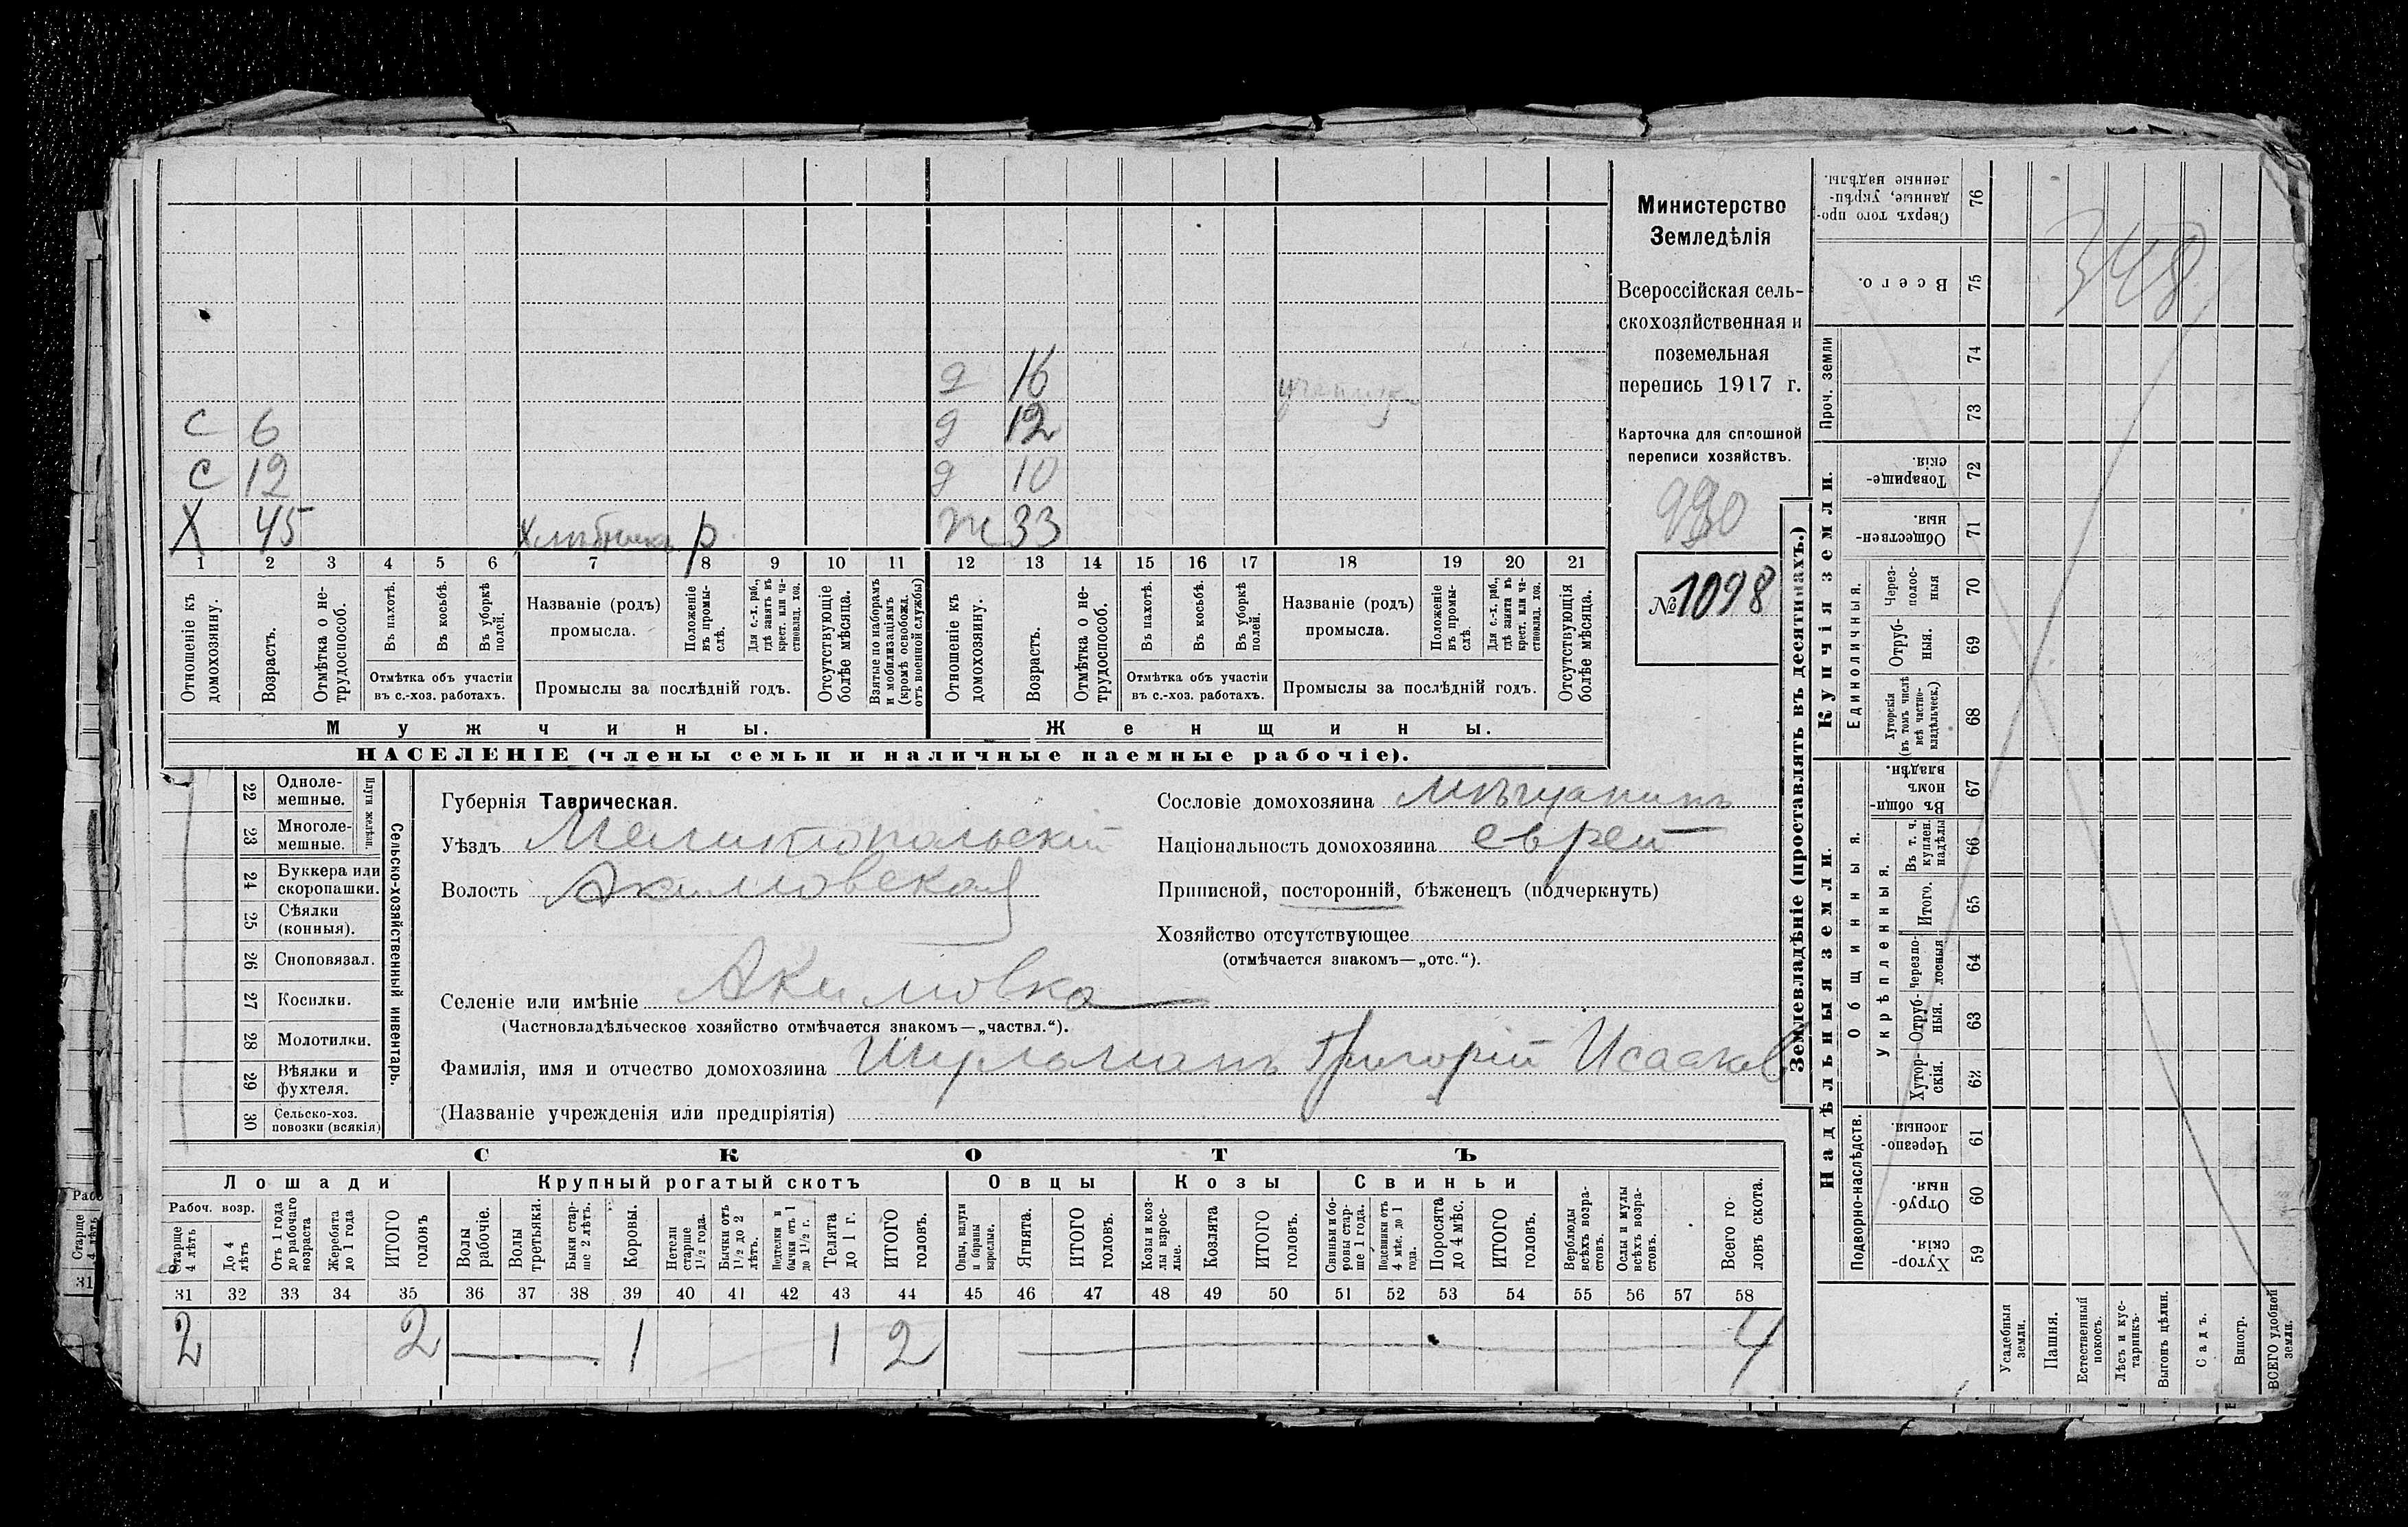 д 16
учениц
с 6 д 12
с 12 д 10
Х 45 р ж 33
1 2 3 4 5 6 7 8 9 10 11 12 13 14 15 16 17 18 19 20 21
Отношеніе къ домохозяину.
Возрастъ.
Отмѣтка о не-
трудоспособ.
Въ пахотѣ.
Въ косьбѣ.
Въ уборкѣ
полей.
Отмѣтка объ участіи
въ с.-хоз. работахъ.
Названіе (родъ)
промысла.
Положеніе
въ промы-
слѣ.
Для с.-х. раб.,
гдѣ занятъ въ
крест. или ча-
стновлад. хоз.
Промыслы за послѣдній годъ.
Отсутствующіе
болѣе мѣсяца.
Взятые по наборамъ
и мобилизаціямъ
(кромѣ освобожд.
отъ военной службы)
Отношеніе къ
домохозяину.
Возрастъ.
Отмѣтка о не-
трудоспособ.
Въ пахотѣ.
Въ косьбѣ.
Въ уборкѣ
полей.
Отмѣтка объ участіи
въ с.-хоз. работахъ.
Названіе (родъ)
промысла.
Положеніе
въ промы-
слѣ.
Для с.-х. раб.,
гдѣ занята въ
крест. или ча-
стновлад. хоз.
Промыслы за послѣдній годъ.
Отсутствующія
болѣе мѣсяца.
Мужчины. Женщины.
НАСЕЛЕНІЕ (члены семьи и наличные наемные рабочіе).
Министерство
Земледѣлія
Всероссійская сель-
скохозяйственная и
поземельная
перепись 1917 г.
Карточка для сплошной
переписи хозяйствъ.
990
№ 1098
22 Одноле-
мешные.
23 Многоле-
мешные.
Плуги желѣзн.
24 Буккера или
скоропашки.
25 Сѣялки
(конныя).
26 Сноповязал.
27 Косилки.
28 Молотилки.
29 Вѣялки и
фухтеля.
30 Сельско-хоз.
повозки (всякія)
Сельско-хозяйственный инвентарь.
Губернія Таврическая.
Уѣздъ Мелитопольскій
Волость Акимовская
Селеніе или имѣніе Акимовка
(Частновладѣльческое хозяйство отмѣчается знакомъ—„частвл.“).
Фамилія, имя и отчество домохозяина Шурломанъ Григорій Исааков
(Названіе учрежденія или предпріятія)
Сословіе домохозяина Мѣщанинъ
Національность домохозяина еврей
Приписной, посторонній, бѣженецъ (подчеркнуть)
Хозяйство отсутствующее
(отмѣчается знакомъ—„отс.“).
СКОТЪ
Лошади Крупный рогатый скотъ Овцы Козы Свиньи
Рабоч. возр.
Старше
4 лѣтъ
До 4
лѣтъ
Отъ 1 года
до рабочаго
возраста
Жеребята
до 1 года
ИТОГО
головъ
Волы
рабочіе.
Волы
третьяки.
Быки стар-
ше 2 лѣтъ.
Коровы.
Нетели
старше
1½ года.
Бычки отъ
1½ до 2
лѣтъ.
Подтелки и
бычки отъ 1
до 1½ г.
Телята
до 1 г.
ИТОГО
головъ.
Овцы, валухи
и бараны
взрослые.
Ягнята.
ИТОГО
головъ.
Козы и коз-
лы взрос-
лые.
Козлята
ИТОГО
головъ.
Свиньи и бо-
ровы стар-
ше 1 года.
Подсвинки отъ
4 мѣс. до 1
года.
Поросята
до 4 мѣс.
ИТОГО
головъ.
Верблюды
всѣхъ возра-
стовъ.
Ослы и мулы
всѣхъ возра-
стовъ.
Всего го-
ловъ скота.
31 32 33 34 35 36 37 38 39 40 41 42 43 44 45 46 47 48 49 50 51 52 53 54 55 56 57 58
2 2 1 1 2 4
Землевладѣніе (проставлять въ десятинахъ.)
Надѣльныя земли. Купчія земли.
Подворно-наслѣдств.
Общинныя.
Укрѣпленныя.
Единоличныя.
Проч. земли
Сверхъ того про-
данные, укрѣп-
ленные надѣлы.
76
Всего.
75
74
73
Товарище-
скія.
72
Обществен-
ныя.
71
Через-
полос-
ныя
70
Отруб-
ныя.
69
Хуторскія
(въ томъ числѣ
всѣ частно-
владѣльческ.)
68
Въ общи-
номъ
владѣн.
67
Въ т. ч.
куплен.
надѣлы
66
Итого.
65
Черезпо-
лосныя
64
Отруб-
ныя.
63
Хутор-
скія.
62
Черезпо-
лосныя.
61
Отруб-
ныя.
60
Хутор-
скія.
59
348
Усадебныя
земли.
Пашня.
Естественный
покосъ.
Лѣсъ и кус-
тарникъ.
Выгонъ цѣлин.
Садъ.
Виногр.
ВСЕГО удобной
земли.
Старше
4 лѣтъ
31